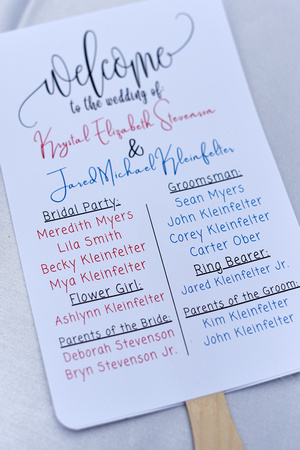 welcome
to the wedding of
Krystal Elizabeth Stevenson
&
Jared Michael Kleinfelter
Bridal Party:
Meredith Myers
Lila Smith
Becky Kleinfelter
Mya Kleinfelter
Flower Girl:
Ashlynn Kleinfelter
Parents of the Bride:
Deborah Stevenson
Bryn Stevenson Jr.
Groomsman:
Sean Myers
John Kleinfelter
Corey Kleinfelter
Carter Ober
Ring Bearer:
Jared Kleinfelter Jr.
Parents of the Groom:
Kim Kleinfelter
John Kleinfelter